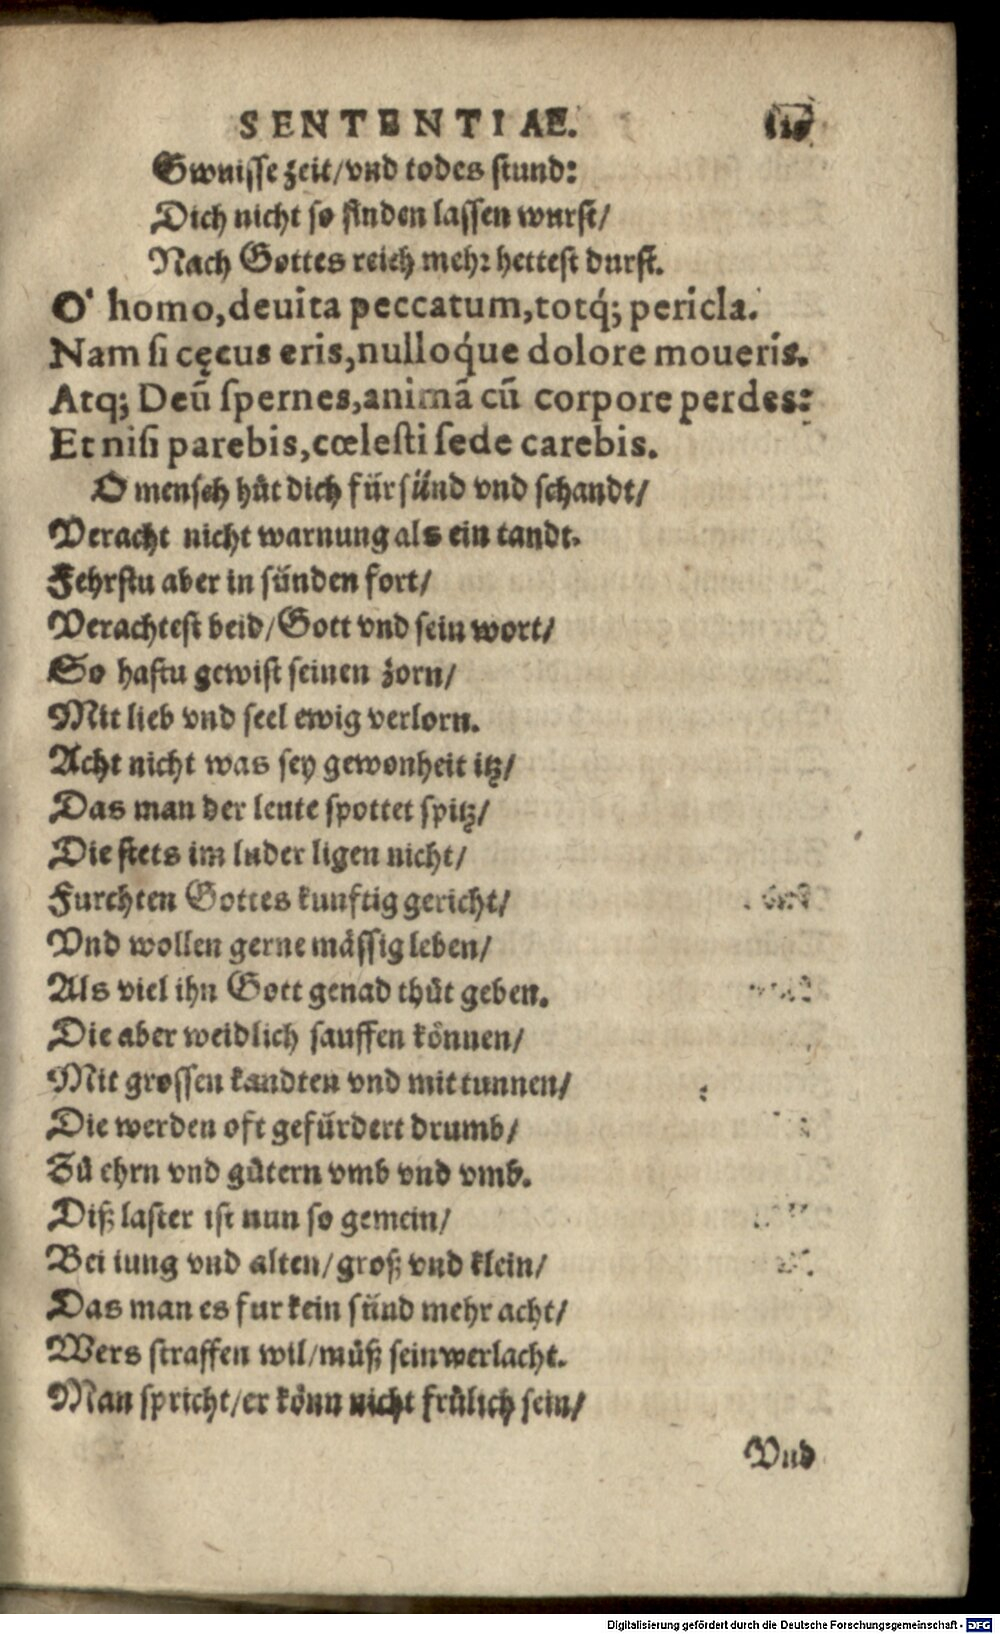 SENTENTIAE.
Gwuisse zeit/vnd todes stund:
Dich nicht so finden lassen wurst/
Nach Gottes reich mehr hettest durst.
O' homo, deuita peccatum, totq́; pericla.
Nam si cęcus eris, nulloq́ue dolore moueris.
Atq; Deū spernes, animā cū corpore perdes:
Et nisi parebis, cœlesti sede carebis.
O mensch hůt dich für sünd vnd schandt/
Veracht nicht warnung als ein tandt.
Fehrstu aber in sünden fort/
Verachtest beid/Gott vnd sein wort/
So hastu gewist seinen zorn/
Mit lieb vnd seel ewig verlorn.
Acht nicht was sey gewonheit itz/
Das man der leute spottet spitz/
Die stets im luder ligen nicht/
Furchten Gottes kunftig gericht/
Vnd wollen gerne mässig leben/
Als viel ihn Gott genad thůt geben.
Die aber weidlich sauffen können/
Mit grossen kandten vnd mit tunnen/
Die werden oft gefürdert drumb/
Zů ehrn vnd gůtern vmb vnd vmb.
Diß laster ist nun so gemein/
Bei iung vnd alten/groß vnd klein/
Das man es fur kein sünd mehr acht/
Wers straffen wil/můß sein werlacht.
Man spricht/er könn nicht frůlich sein/
Vnd
Digitalisierung gefördert durch die Deutsche Forschungsgemeinschaft - DFG